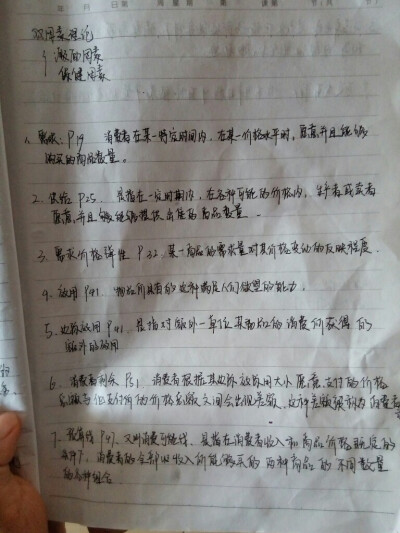 双因素理论
激励因素
保健因素
1、需求：P19 消费者在某一特定时间内，在某一价格水平时，愿意并且能够
购买的商品数量。
2、供给 P25 是指在一定时期内，在各种可能的价格内，生产者愿意
愿意并且能够提供出售的商品数量。
3、需求价格弹性 P32，某一商品的需求量对其价格变动的反映程度。
4、效用 P41 物品所具有的这种满足人们欲望的能力。
5、边际效用 P41 是指对额外一单位某商品的消费所获得的
额外的效用
6、消费者剩余 P51 消费者根据其边际效用大小愿意支付的价格
总额与他支付的价格总额之间会出现差额，这种差额被称为消费者
7、预算线 P47 又叫消费可能线，是指在消费者收入和商品价格既定的
条件下，消费者的全部收入所能购买的两种商品的不同数量
的各种组合